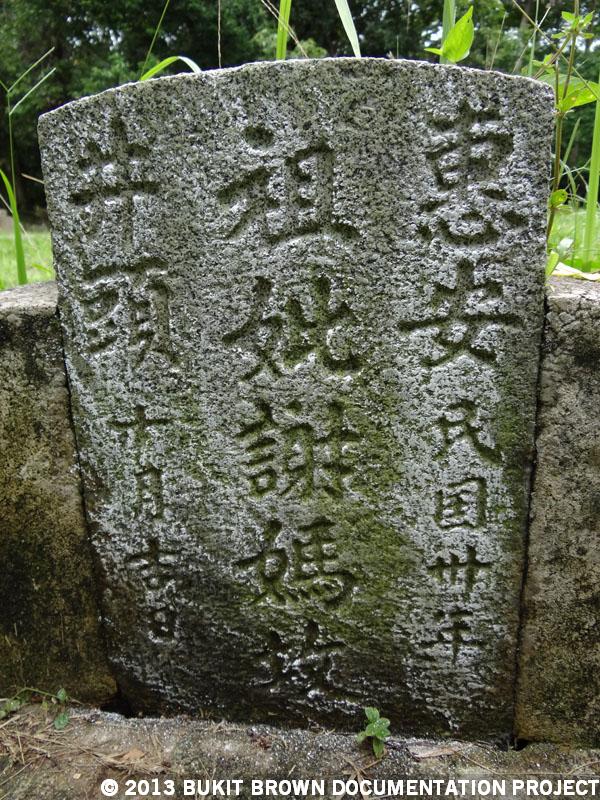 惠安民国卅年
祖妣謝媽坆
井頭十月吉日
© 2013 BUKIT BROWN DOCUMENTATION PROJECT